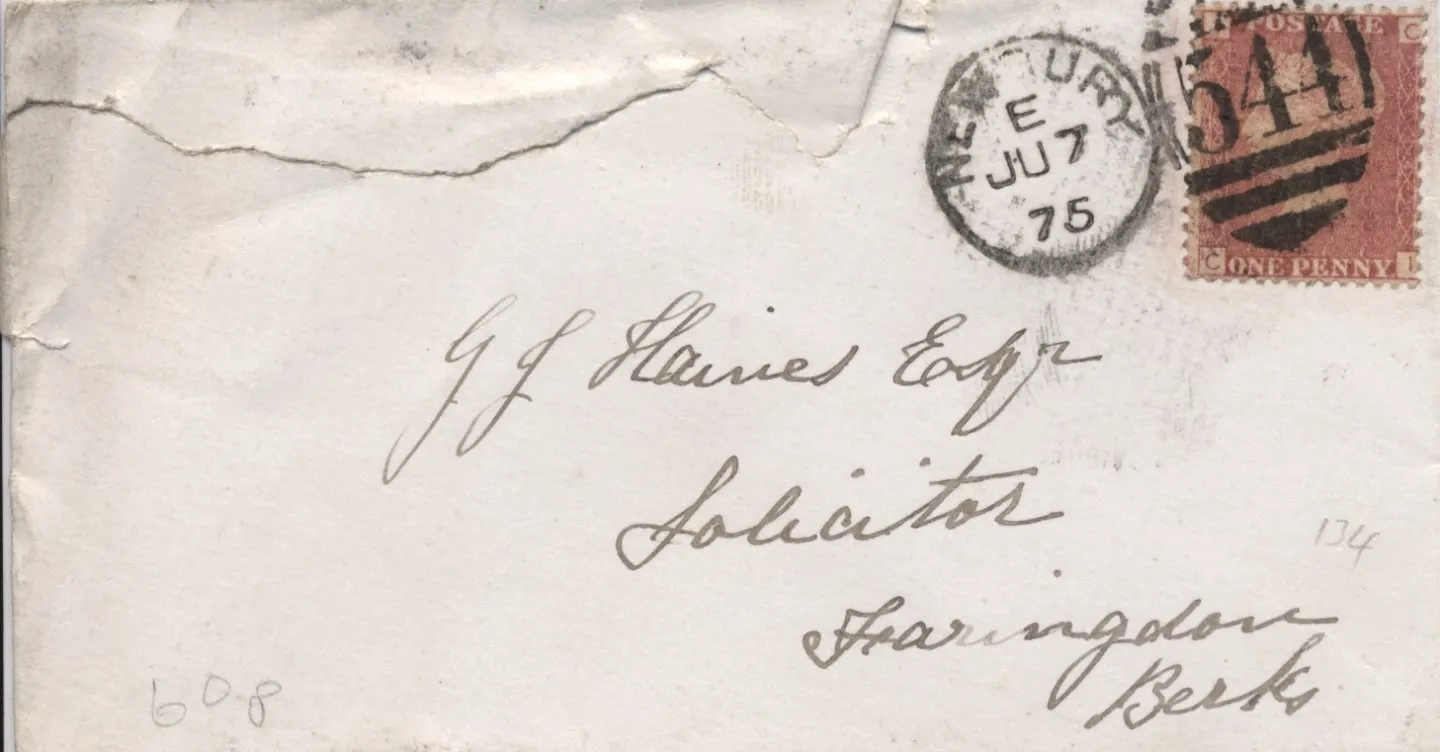 POSTAGE
I C
544
C ONE PENNY I
NEWBURY
E
JU 7
75
G J Haines Esqr
Solicitor
Faringdon
Berks
134
60p